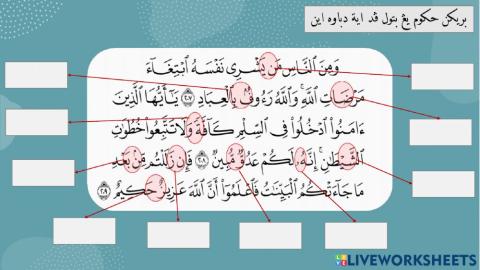 بريكن حكوم يڠ بتول ڤد اية دباوه اين
وَمِنَ ٱلنَّاسِ مَن يَشۡرِي نَفۡسَهُ ٱبۡتِغَآءَ
مَرۡضَاتِ ٱللَّهِۚ وَٱللَّهُ رَءُوفُۢ بِٱلۡعِبَادِ ٢٠٧ يَٰٓأَيُّهَا ٱلَّذِينَ
ءَامَنُواْ ٱدۡخُلُواْ فِي ٱلسِّلۡمِ كَآفَّةٗ وَلَا تَتَّبِعُواْ خُطُوَٰتِ
ٱلشَّيۡطَٰنِۚ إِنَّهُۥ لَكُمۡ عَدُوّٞ مُّبِينٞ ٢٠٨ فَإِن زَلَلۡتُم مِّنۢ بَعۡدِ
مَا جَآءَتۡكُمُ ٱلۡبَيِّنَٰتُ فَٱعۡلَمُوٓاْ أَنَّ ٱللَّهَ عَزِيزٌ حَكِيمٌ ٢٠٩
LIVEWORKSHEETS